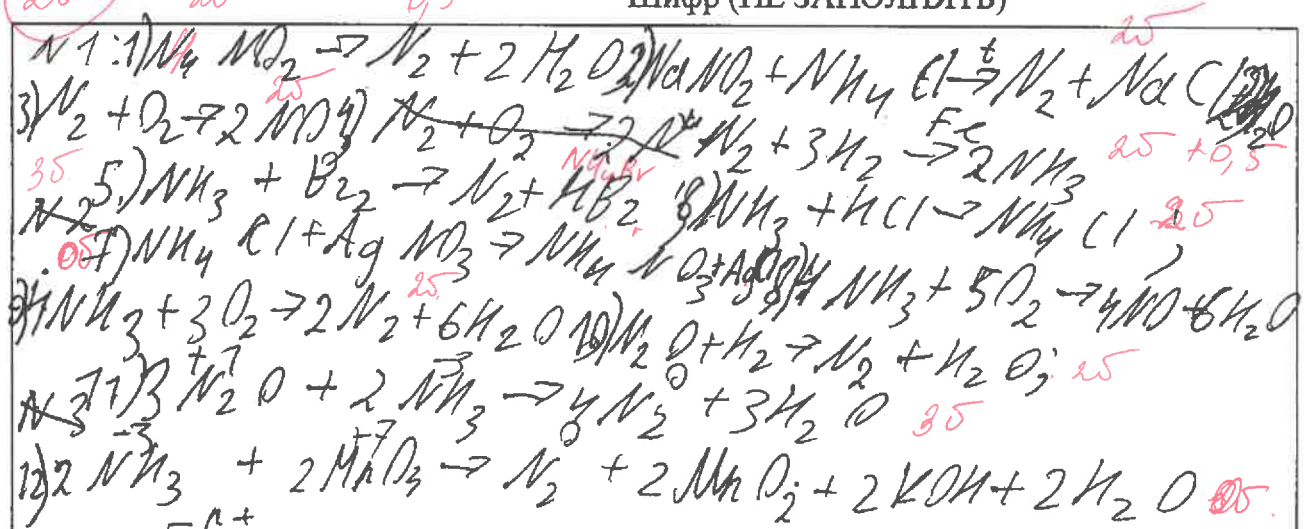 Шифр (НЕ ЗАПОЛНЯТЬ)
N 1: 1) NH4 NO2 → N2 + 2 H2 O 2) NaNO2 + NH4 Cl t→ N2 + NaCl + 2H2O 2б
3) N2 + O2 → 2 NO 2б 4) N2 + O2 → 2 N N2 + 3H2 Fe→ 2NH3 2б + 0,5
3б 5.) NH3 + Br2 → N2 + HBr NH4Br 6) NH3 + HCl → NH4 Cl 2б
N 2
0б 7) NH4 Cl + Ag NO3 → NH4 NO3 + AgCl 8) 4 NH3 + 5O2 → 4NO + 6H2O
9) 4NH3 + 3O2 → 2N2 + 6H2O 2б 10) N2O + H2 → N2 + H2O; 2б
N 3 11) 3 +1 N2O + 2 -3 NH3 → 4 0 N2 + 3H2O 3б
12) 2 -3 NH3 + 2 +7 MnO3 → 0 N2 + 2 MnO2 + 2 KOH + 2 H2 O 0б.